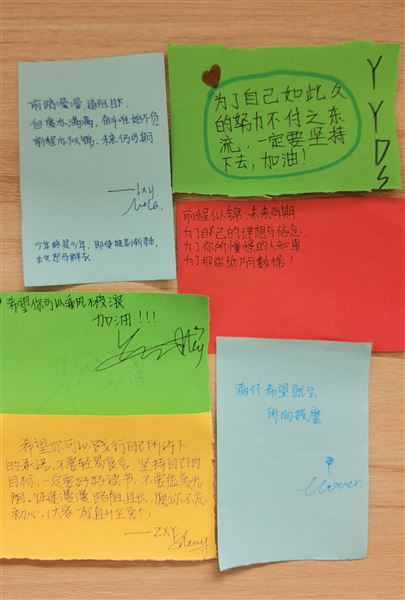 前路漫漫,道阻且长,
但爱亦满满,奋斗唯始不负
前程亦似锦,未来仍可期
——lxy
少年终是少年,即使被刮到骨,
为了自己如此久
的努力不付之东
流,一定要坚持
下去,加油!
YYDS
前程似锦,未来可期
为了自己的理想与信念,
为了你所憧憬的人和事
为了那些纸片数据!
希望你可以乘风破浪
加油!!!
满怀希望就会
所向披靡
Clover.
希望你可以践行自己所许下
的承诺,不要轻易食言,坚持自己的
目标,一定要好好读书,不要虚度光
阴。征途漫漫,路阻且长,愿你不忘
初心。(大家一起直升全员个)
——ZXY